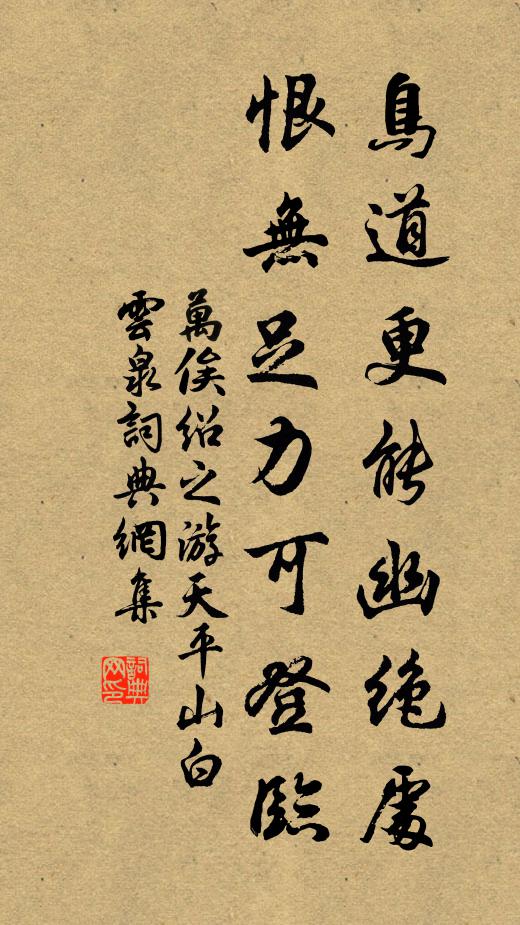 鳥道更能幽絶處
恨無足力可登臨
萬俟紹之游天平山白
雲泉詞典網集
詞典
网印